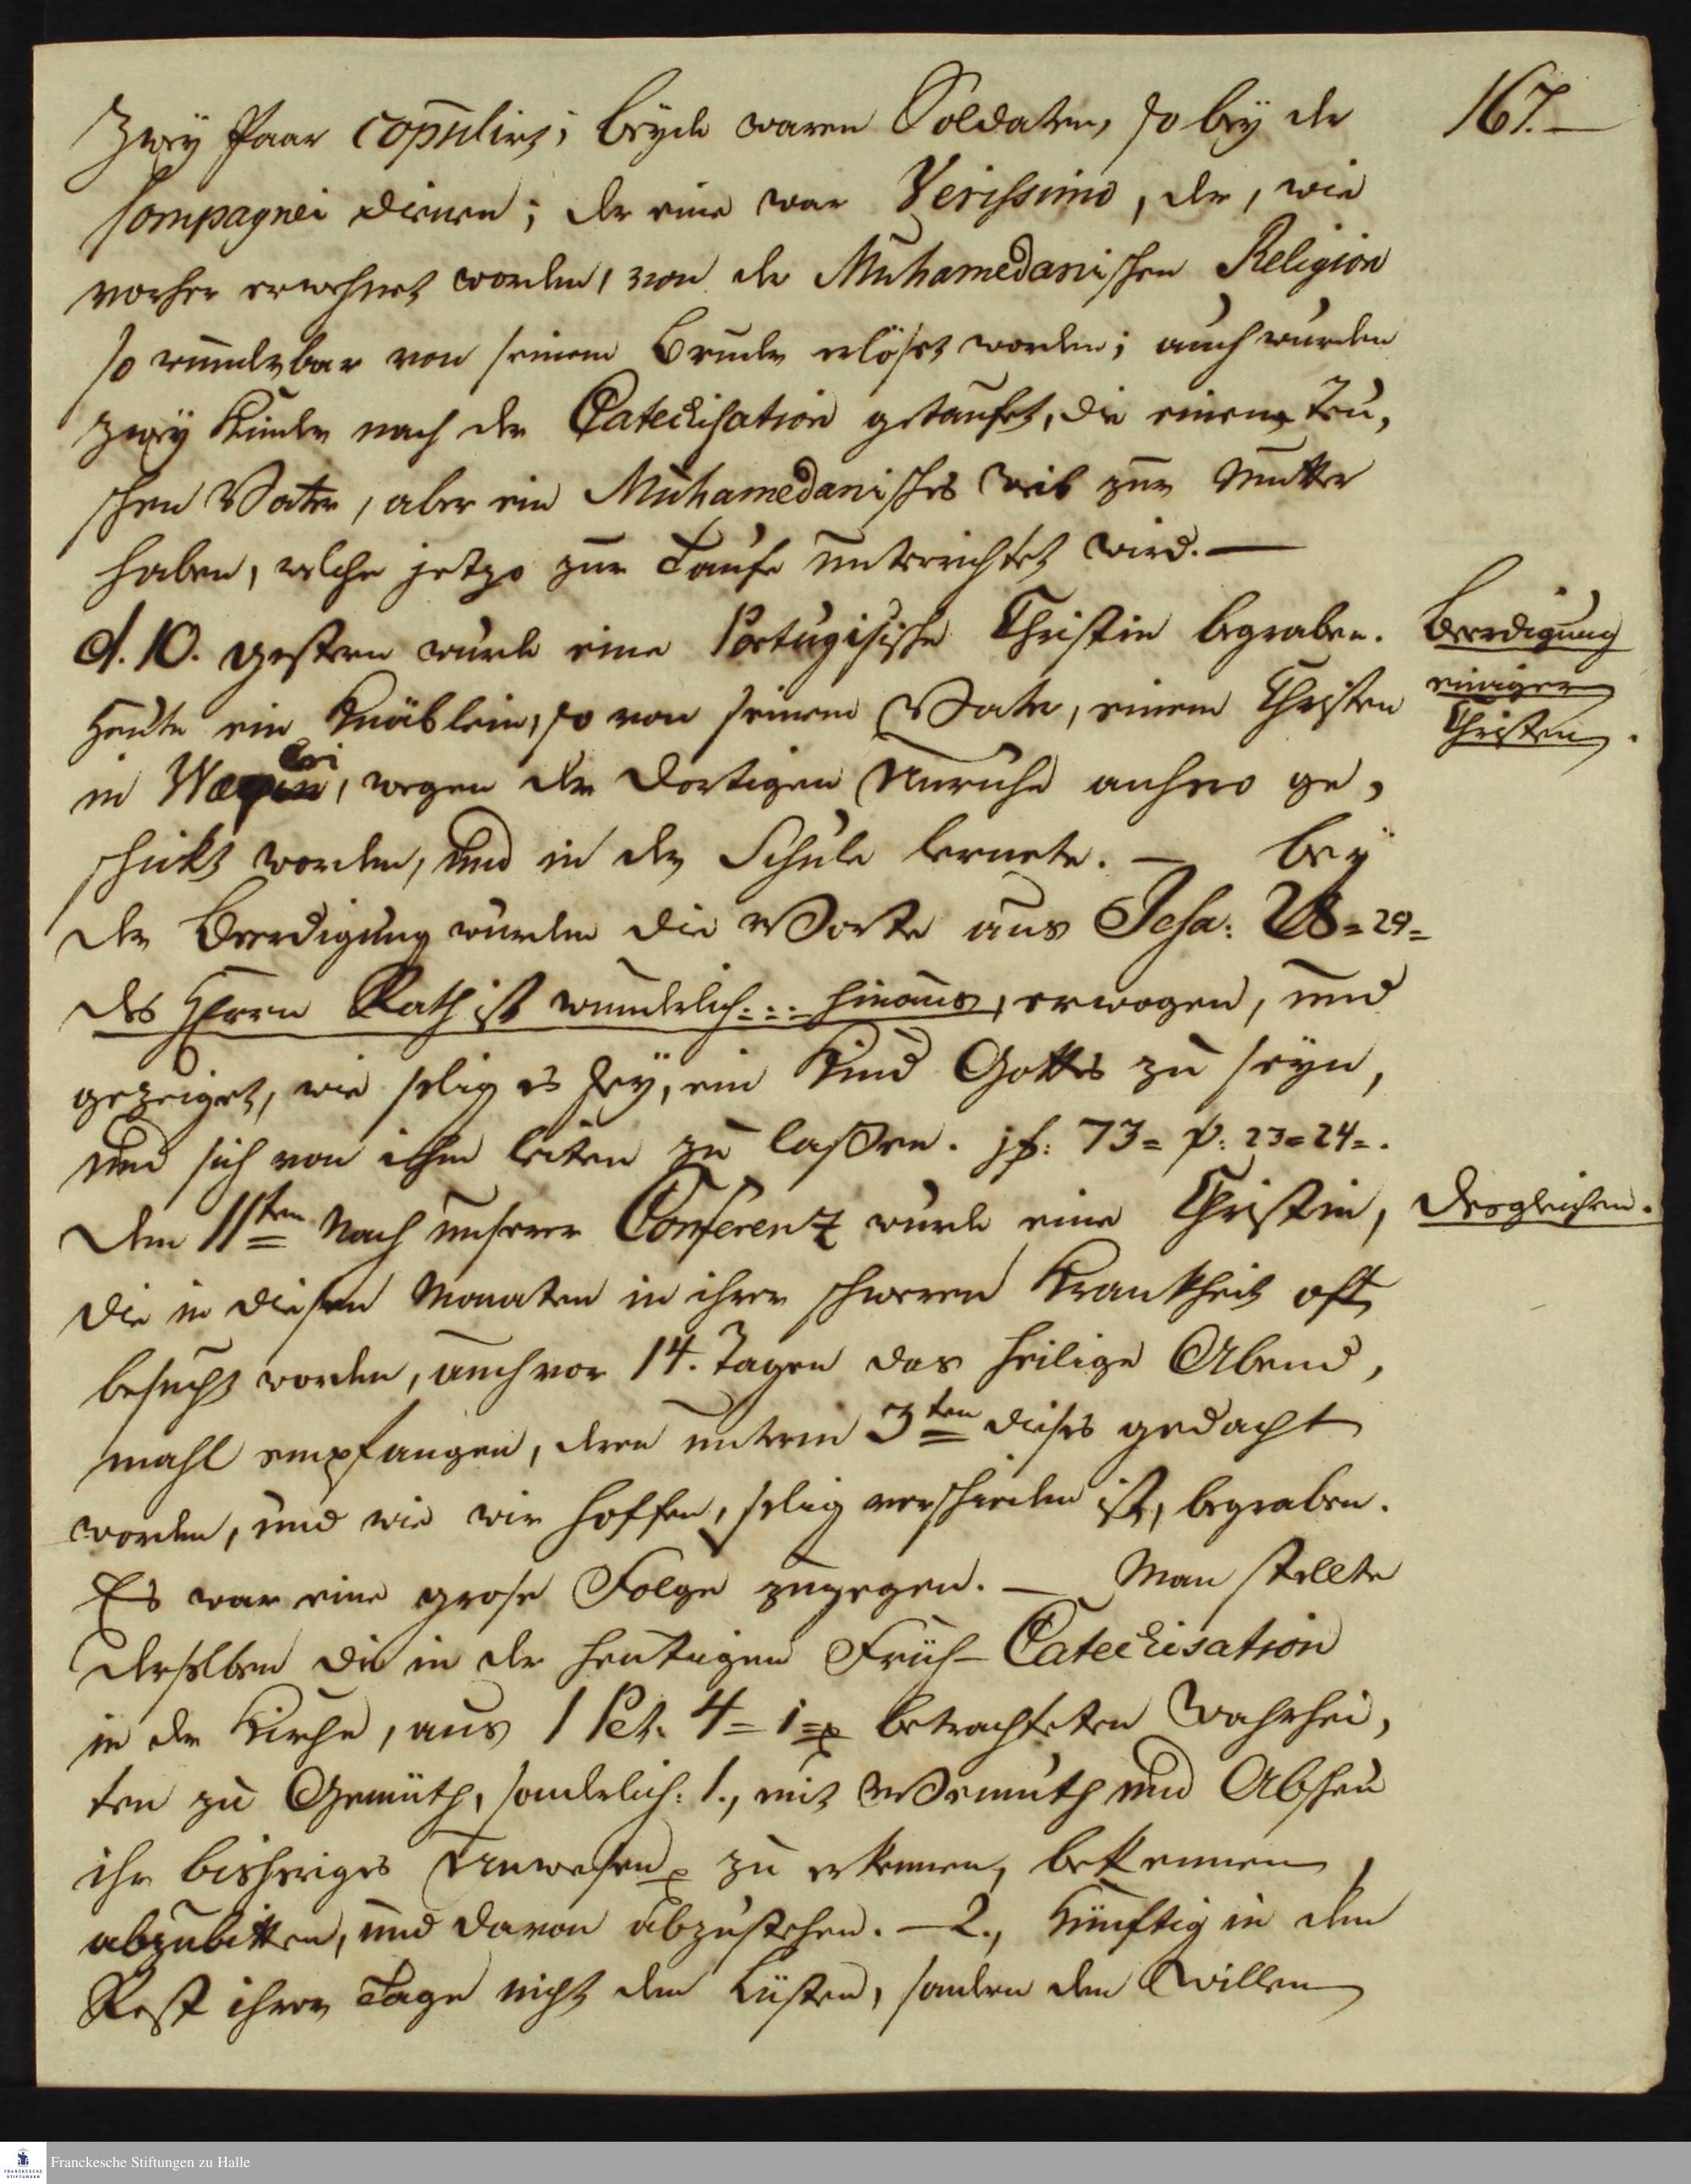 167.
Zwey Paar copulirt; beyde waren Soldaten, so bey der
Compagnei dienen; der eine war Verissimo, der, wie
vorher erwehnet worden, von der Muhamedanischen Religion
so wunderbar von seinem Bruder erlöset worden; auch wurden
zwey Kinder nach der Catechisation getauft, die einen Teu,
schen Vater, aber ein Muhamedanisches Weib zur Mutter
haben, welche jetzo zur Taufe unterrichtet wird. —
d. 10. gestern wurde eine Portugisische Christin begraben.
Beerdigung
einiger
Christen.
Heute ein Knäblein, so von seinem Vater, einem Christen
in wegen der dortigen Unruhe anhero ge,
schickt worden, und in der Schule lernete. — bey
der Beerdigung wurden die Worte aus Jesa: 28=29=
des Herrn Rath ist wunderlich:... hinaus, erwogen, und
gezeiget, wie selig es sey, ein Kind Gottes zu seyn,
und sich von ihm leiten zu laßen. ψ: 73= v: 23=24=.
Den 11ten Nach unserer Conferenz wurde eine Christin,
Desgleichen.
die in diesen Monaten in ihrer schweren Krankheit oft
besucht worden, auch vor 14. Tagen das heilige Abend,
mahl empfangen, deren unterm 3ten dieses gedacht
worden, und wie wir hoffen, selig verschieden ist, begraben.
Es war eine grose Folge zugegen. — Man stellte
derselben die in der heutigen Früh-Catechisation
in der Kirche, aus 1 Pet. 4=1= betrachteten Wahrhei,
ten zu Gemüth, sonderlich: 1., mit Wemuth und Abscheu
ihr bisheriges Unwesen zu erkennen, bekennen,
abzubitten, und davon abzustehen. — 2., Künftig in dem
Rest ihrer Tage nicht den Lüsten, sondern dem Willen
Franckesche Stiftungen zu Halle